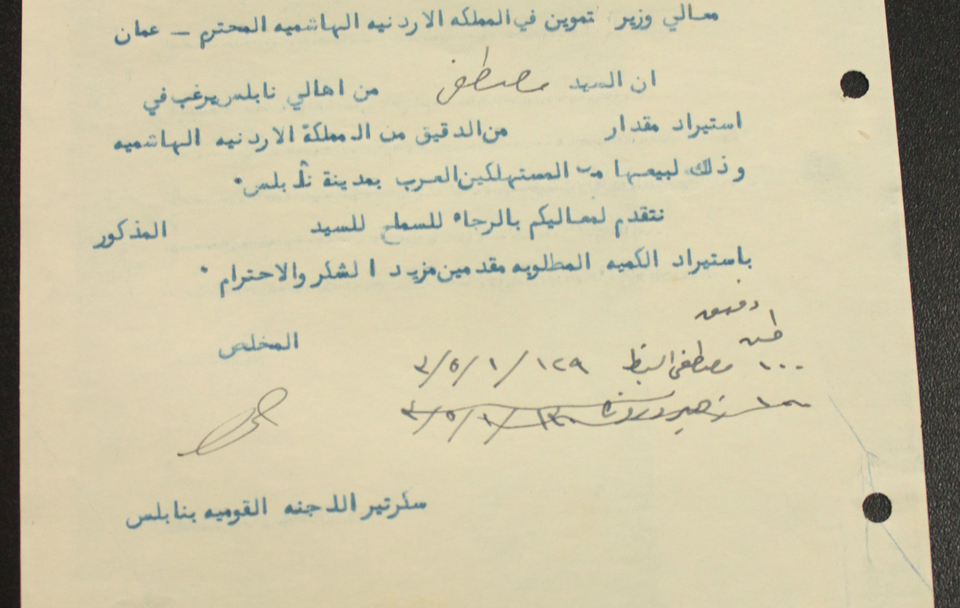 معالي وزير تموين في المملكه الاردنيه الهاشميه المحترم — عمان
ان السيد مصطفى من اهالي نابلس يرغب في
استيراد مقدار من الدقيق من المملكة الاردنيه الهاشميه
وذلك لبيعها من المستهلكين العرب بمدينة نابلس.
نتقدم لمعاليكم بالرجاء للسماح للسيد المذكور
باستيراد الكميه المطلوبه مقدمين مزيد الشكر والاحترام .
المخلص
دقيق
طن
١٠٠٠ مصطفى ١٢٩/١/٥/٣
١٣٠/١/٥/٣
سكرتير اللجنه القوميه بنابلس